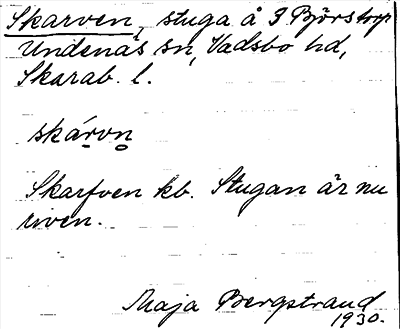 Skarven, stuga å 3 Björstorp
Undenäs sn, Vadsbo hd,
Skarab. l.
skárvn̥
Skarfven kb. Stugan är nu
riven.
Maja Bergstrand
1930.